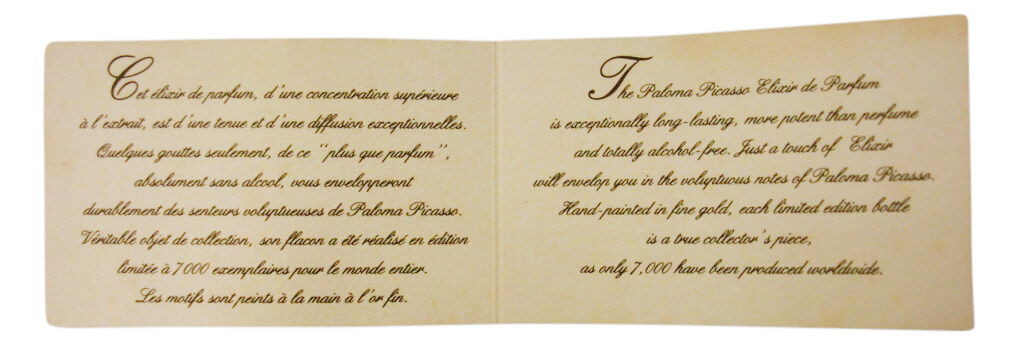 Cet élixir de parfum, d'une concentration supérieure
à l'extrait, est d'une tenue et d'une diffusion exceptionnelles.
Quelques gouttes seulement, de ce "plus que parfum",
absolument sans alcool, vous envelopperont
durablement des senteurs voluptueuses de Paloma Picasso.
Véritable objet de collection, son flacon a été réalisé en édition
limitée à 7000 exemplaires pour le monde entier.
Les motifs sont peints à la main à l'or fin.
The Paloma Picasso Elixir de Parfum
is exceptionally long-lasting, more potent than perfume
and totally alcohol-free. Just a touch of Elixir
will envelop you in the voluptuous notes of Paloma Picasso.
Hand-painted in fine gold, each limited edition bottle
is a true collector's piece,
as only 7,000 have been produced worldwide.